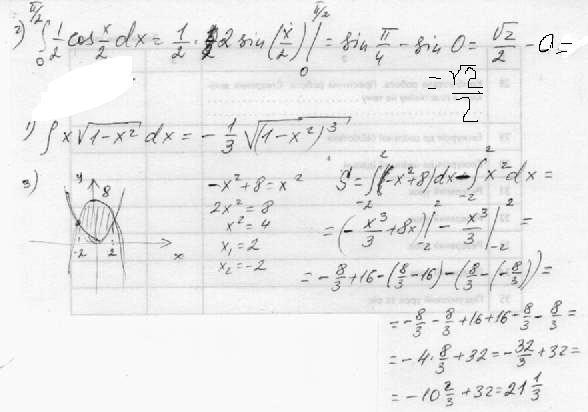 2) ∫₀^{π/2} 1/2 cos x/2 dx = 1/2 · 2 sin(x/2) |₀^{π/2} = sin π/4 - sin 0 = √2/2 - 0 =
= √2/2
1) ∫ x√(1-x²) dx = - 1/3 √(1-x²)³
3)
y
8
-2
2
x
-x²+8 = x²
2x² = 8
x² = 4
x₁ = 2
x₂ = -2
S = ∫₋₂² (-x²+8)dx - ∫₋₂² x² dx =
= (- x³/3 + 8x) |₋₂² - x³/3 |₋₂² =
= - 8/3 + 16 - (8/3 - 16) - (8/3 - (-8/3)) =
= - 8/3 - 8/3 + 16 + 16 - 8/3 - 8/3 =
= -4 · 8/3 + 32 = - 32/3 + 32 =
= -10 2/3 + 32 = 21 1/3